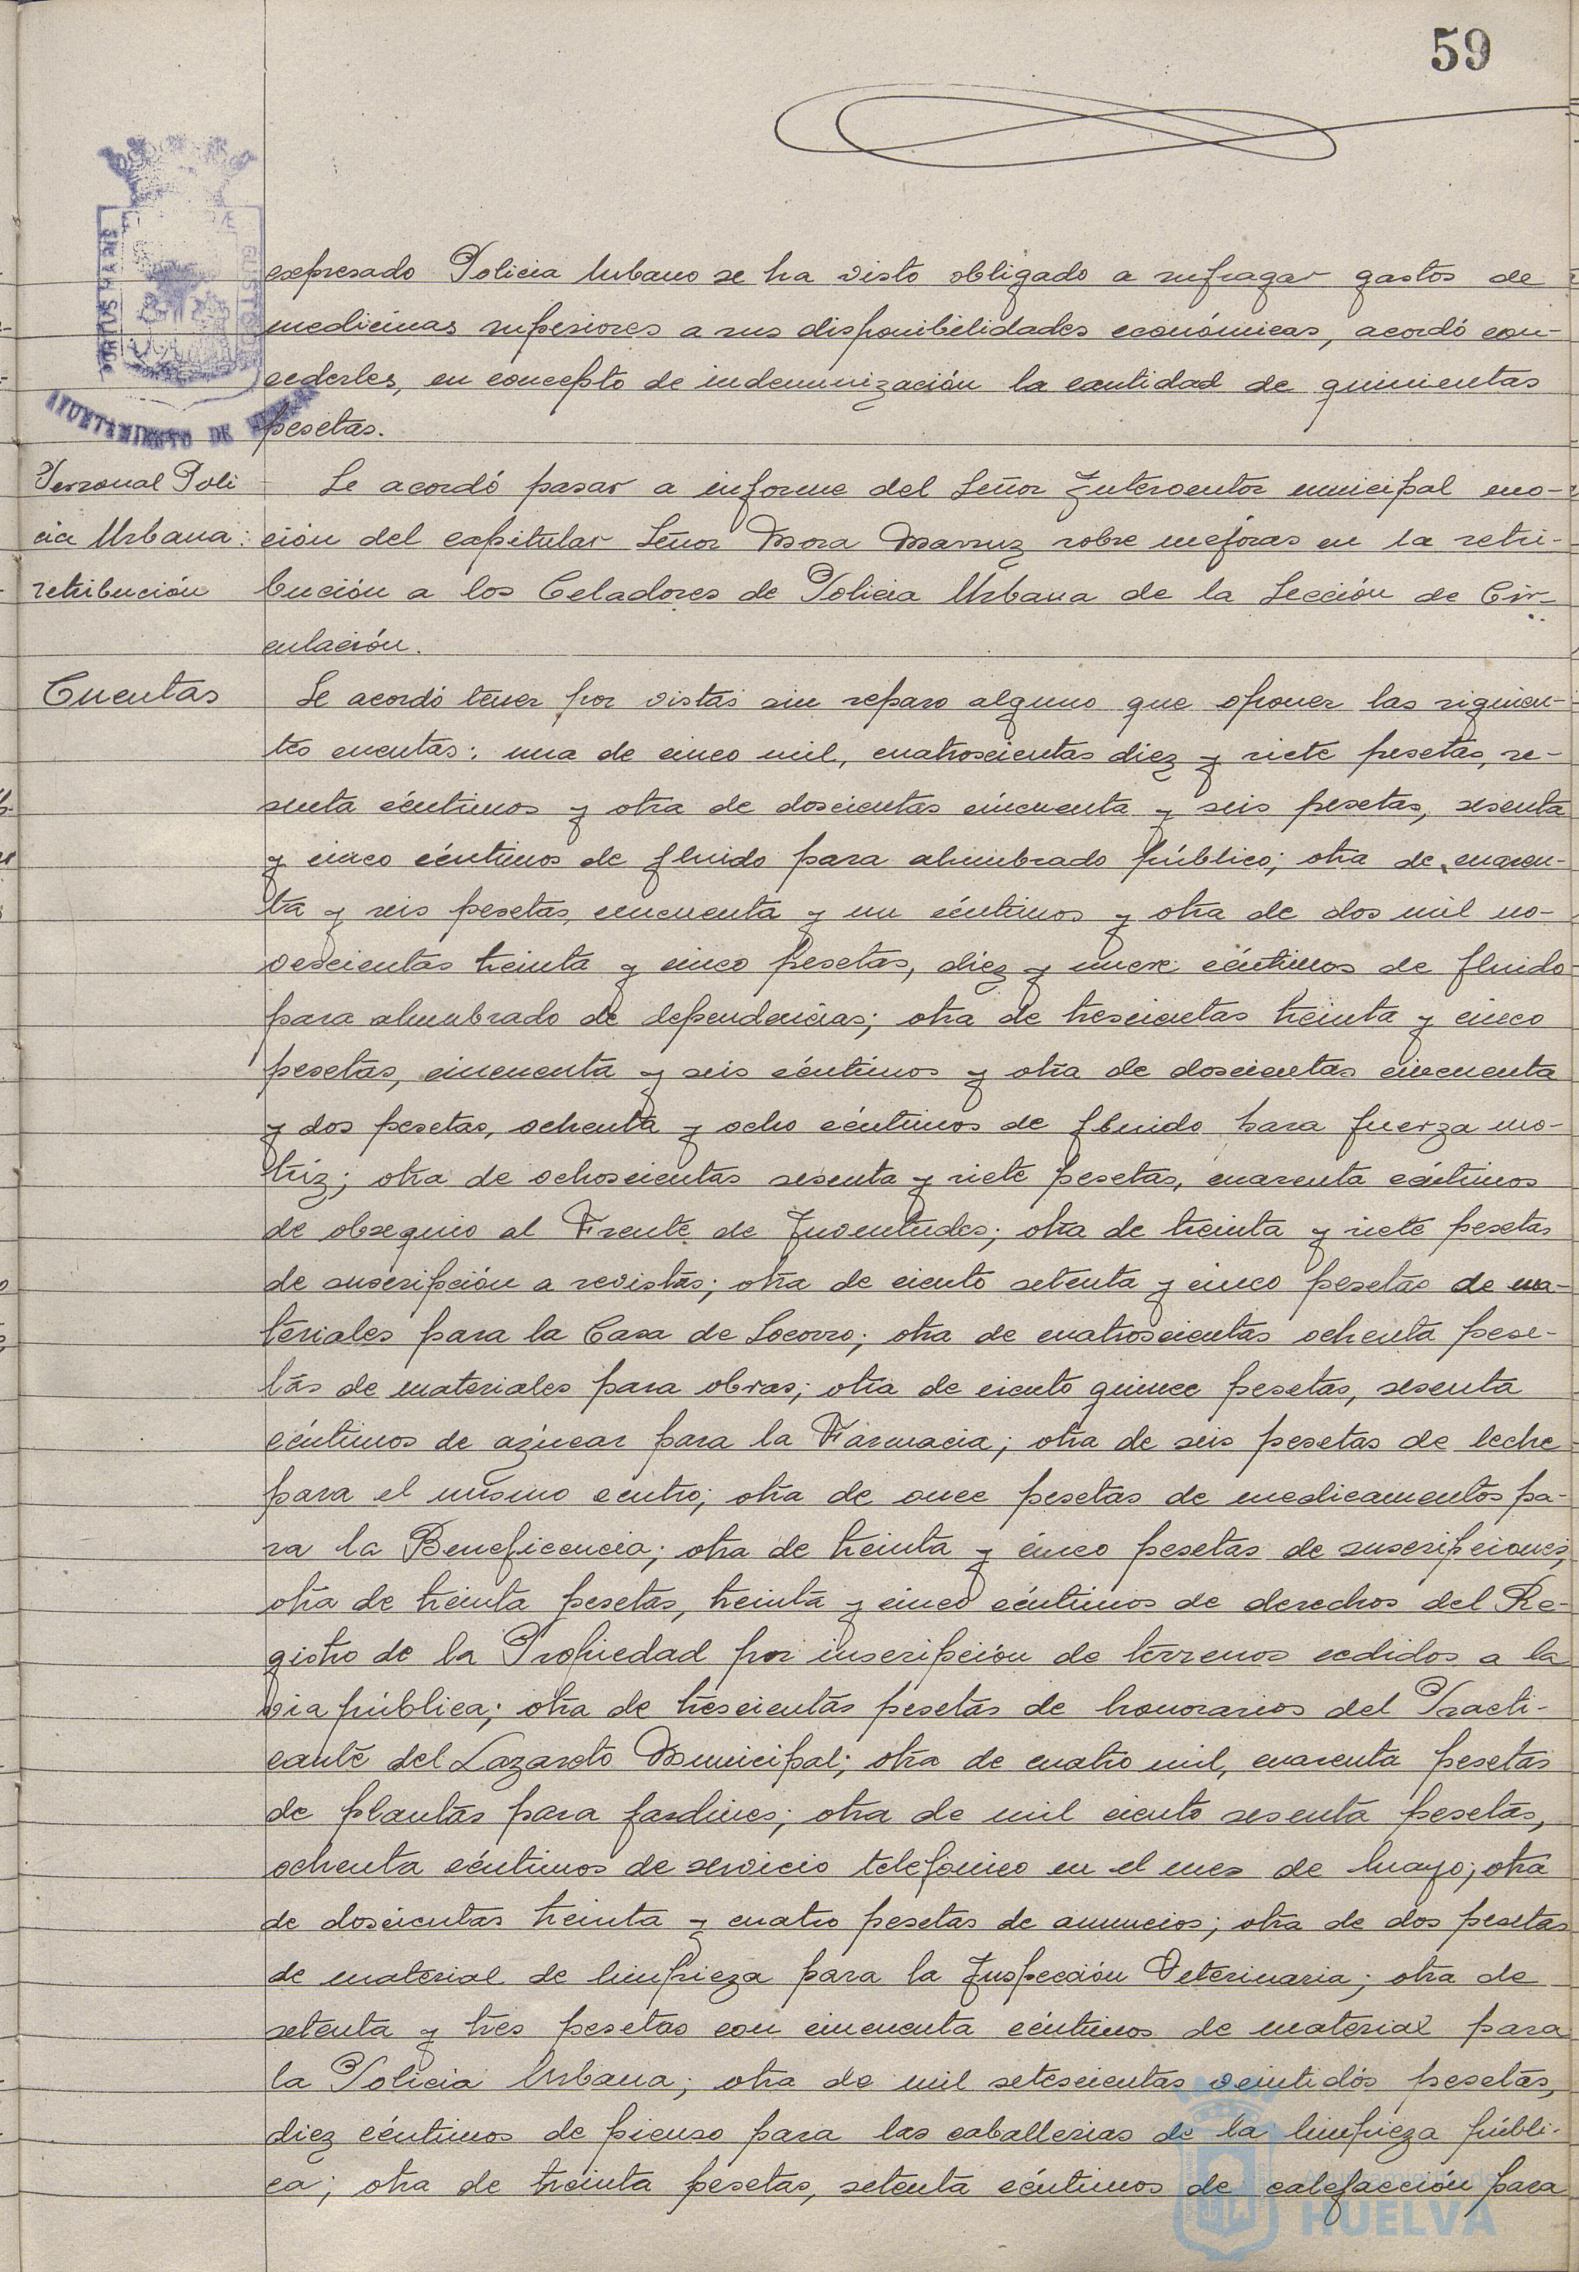 59
expresado Policia Urbano se ha visto obligado a sufragar gastos de
medicinas superiores a sus disponibilidades económicas, acordó con-
cederles, en concepto de indemnización la cantidad de quinientas
pesetas.
AYUNTAMIENTO DE HUELVA
Personal Poli
cia Urbana:
retribución
Se acordó pasar a informe del Señor Interventor municipal mo-
ción del capitular Señor Mora Marruz sobre mejoras en la retri-
bución a los Celadores de Policia Urbana de la Sección de Cir-
culación.
Cuentas
Se acordó tener por vistas sin reparo alguno que oponer las siguien-
tes cuentas: una de cinco mil, cuatroscientas diez y siete pesetas, se-
senta céntimos y otra de doscientas cincuenta y seis pesetas, sesenta
y cinco céntimos de fluido para alumbrado público; otra de cuaren-
ta y seis pesetas, cincuenta y un céntimos y otra de dos mil no-
vescientas treinta y cinco pesetas, diez y nueve céntimos de fluido
para alumbrado de dependencias; otra de trescientas treinta y cinco
pesetas, cincuenta y seis céntimos y otra de doscientas cincuenta
y dos pesetas, ochenta y ocho céntimos de fluido para fuerza mo-
triz; otra de ochoscientas sesenta y siete pesetas, cuarenta céntimos
de obsequio al Frente de Juventudes; otra de treinta y siete pesetas
de suscripción a revistas; otra de ciento setenta y cinco pesetas de ma-
teriales para la Casa de Socorro; otra de cuatroscientas ochenta pese-
tas de materiales para obras; otra de ciento quince pesetas, sesenta
céntimos de azúcar para la Farmacia; otra de seis pesetas de leche
para el mismo centro; otra de once pesetas de medicamentos pa-
ra la Beneficencia; otra de treinta y cinco pesetas de suscripciones;
otra de treinta pesetas, treinta y cinco céntimos de derechos del Re-
gistro de la Propiedad por inscripción de terrenos cedidos a la
via pública; otra de trescientas pesetas de honorarios del Practi-
cante del Lazareto Municipal; otra de cuatro mil, cuarenta pesetas
de plantas para jardines; otra de mil ciento sesenta pesetas,
ochenta céntimos de servicio telefonico en el mes de Mayo; otra
de doscientas treinta y cuatro pesetas de anuncios; otra de dos pesetas
de material de limpieza para la Inspección Veterinaria; otra de
setenta y tres pesetas con cincuenta céntimos de material para
la Policia Urbana; otra de mil setescientas veintidós pesetas,
diez céntimos de pienso para las caballerias de la limpieza públi-
ca; otra de treinta pesetas, setenta céntimos de calefacción para
Ayuntamiento de
HUELVA